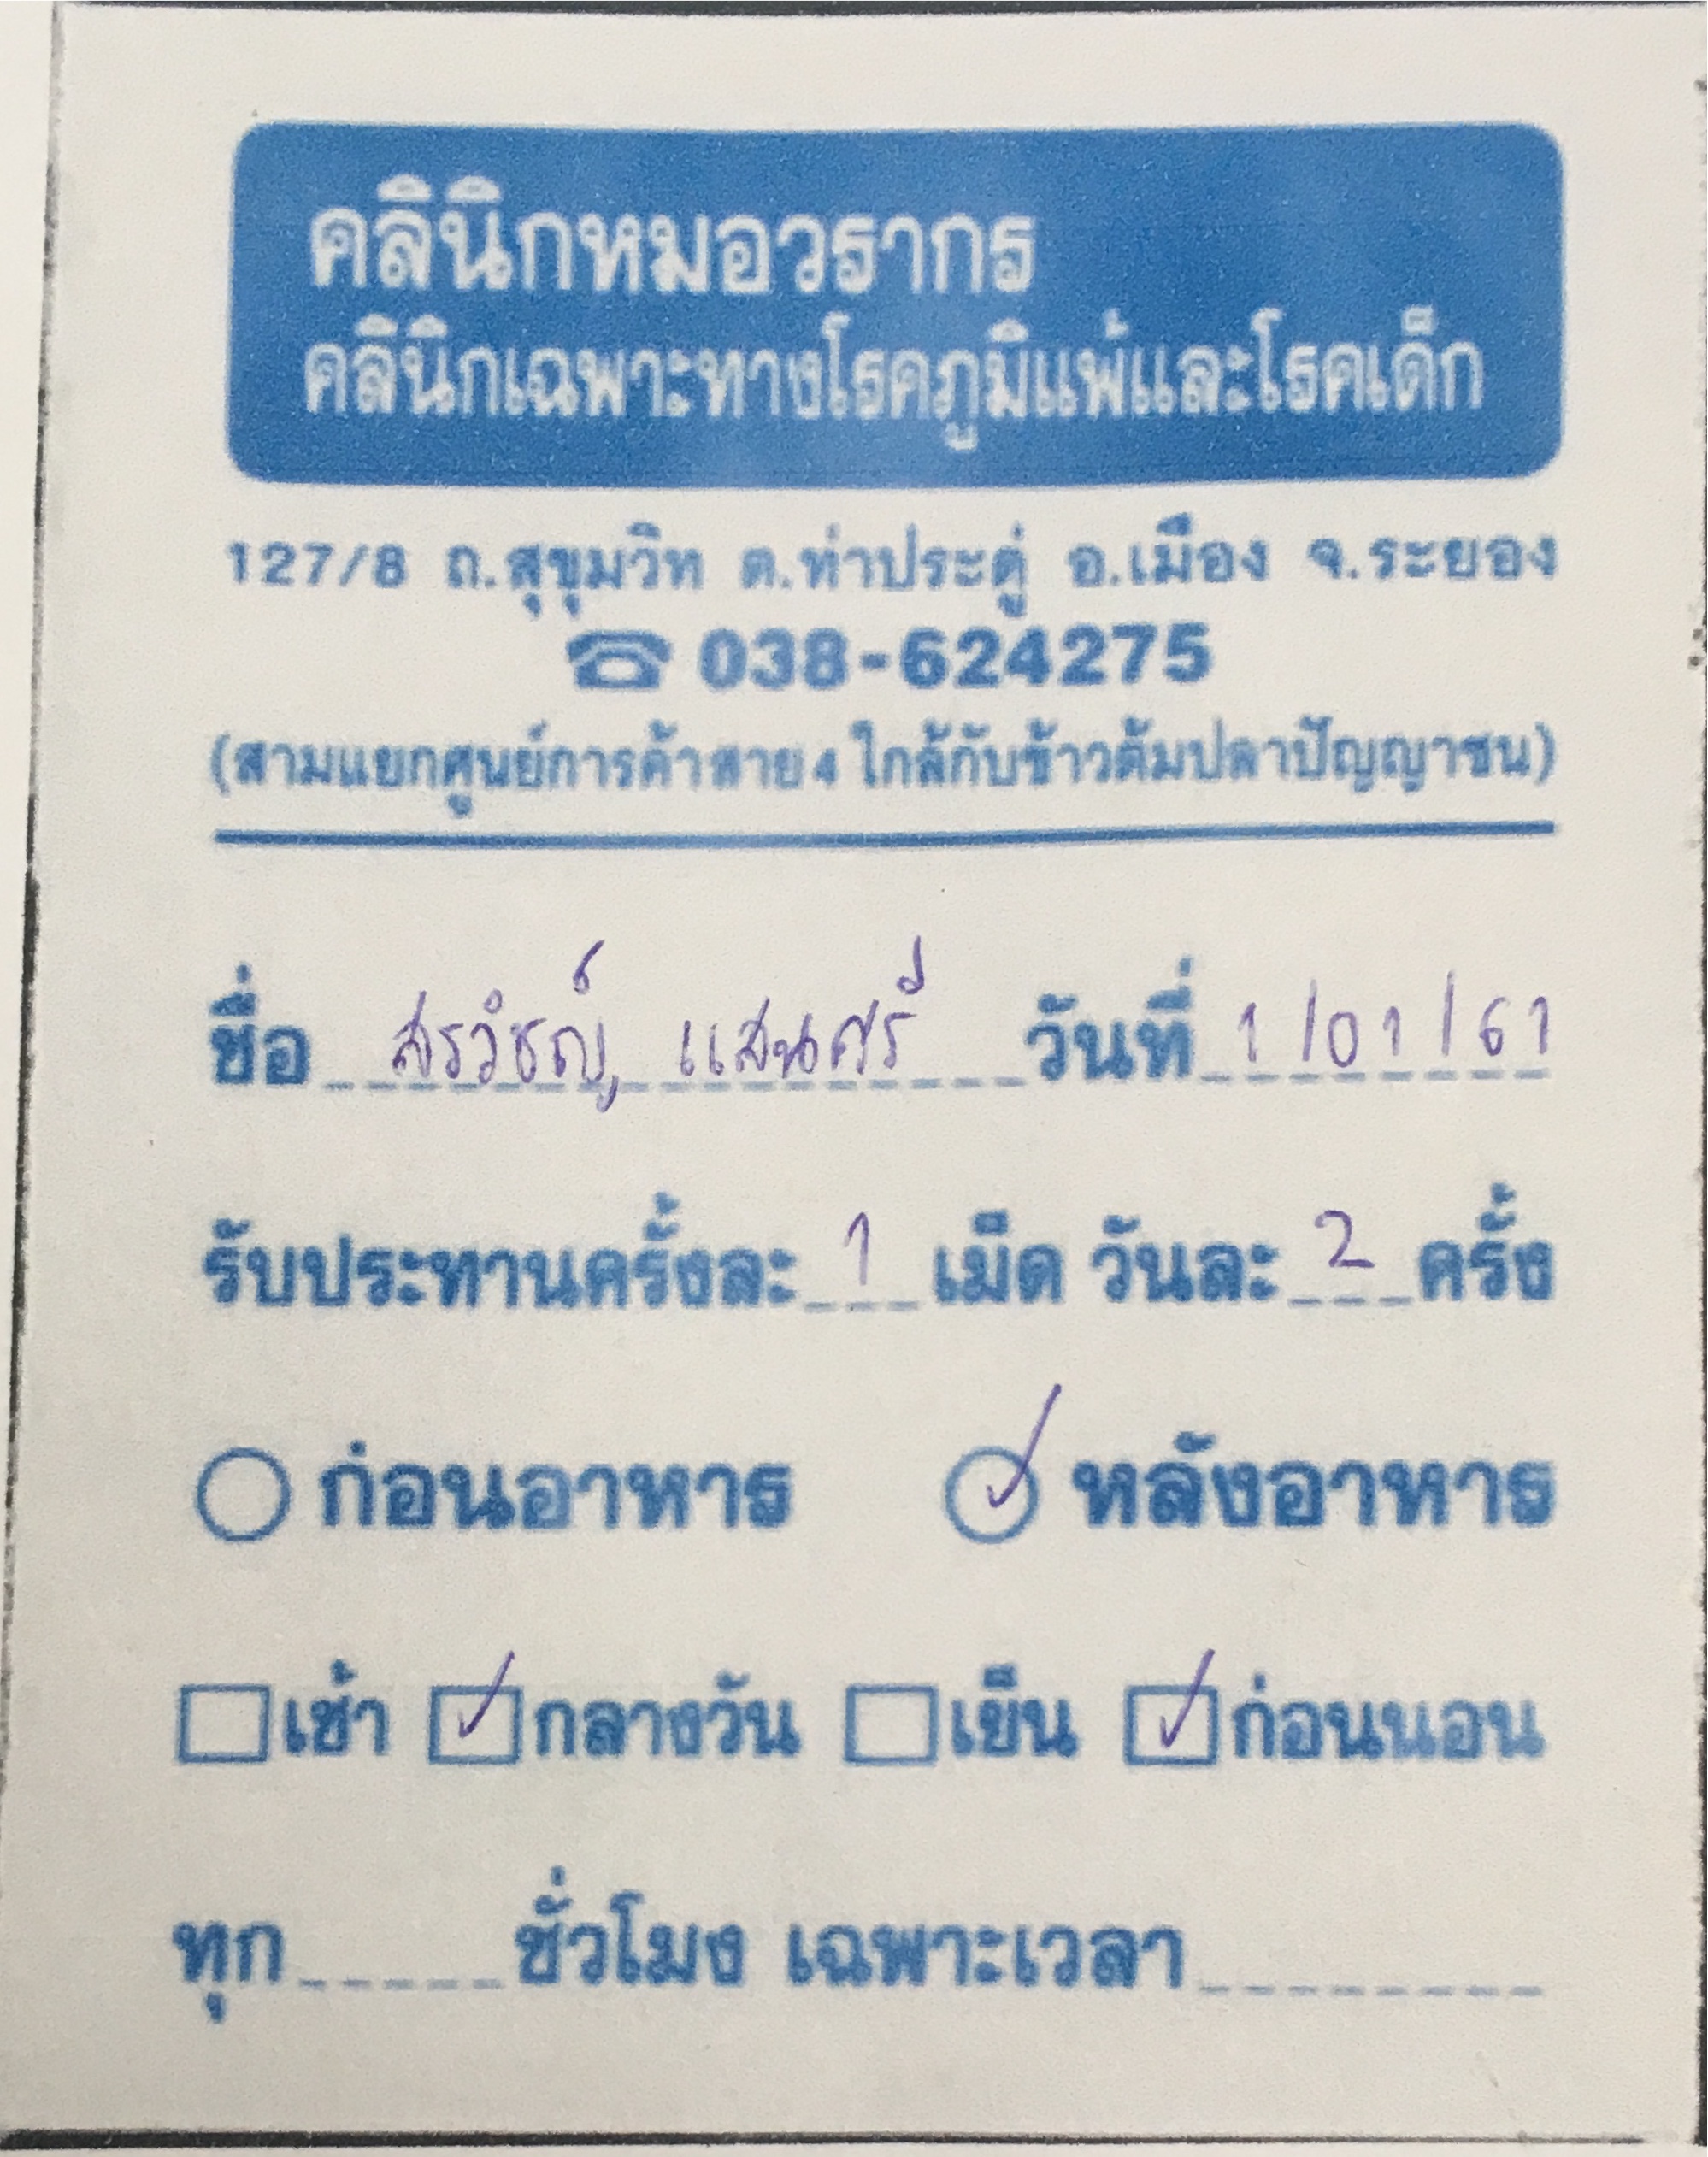 คลินิกหมอวรากร
คลินิกเฉพาะทางโรคภูมิแพ้และโรคเด็ก
127/8 ถ.สุขุมวิท ต.ท่าประดู่ อ.เมือง จ.ระยอง
☎ 038-624275
(สามแยกศูนย์การค้าสาย 4 ใกล้กับข้าวต้มปลาปัญญาชน)
ชื่อ สรวิชญ์ แสนศรี วันที่ 1/01/61
รับประทานครั้งละ 1 เม็ด วันละ 2 ครั้ง
ก่อนอาหาร ✓ หลังอาหาร
เช้า ✓ กลางวัน เย็น ✓ ก่อนนอน
ทุก_____ชั่วโมง เฉพาะเวลา_________